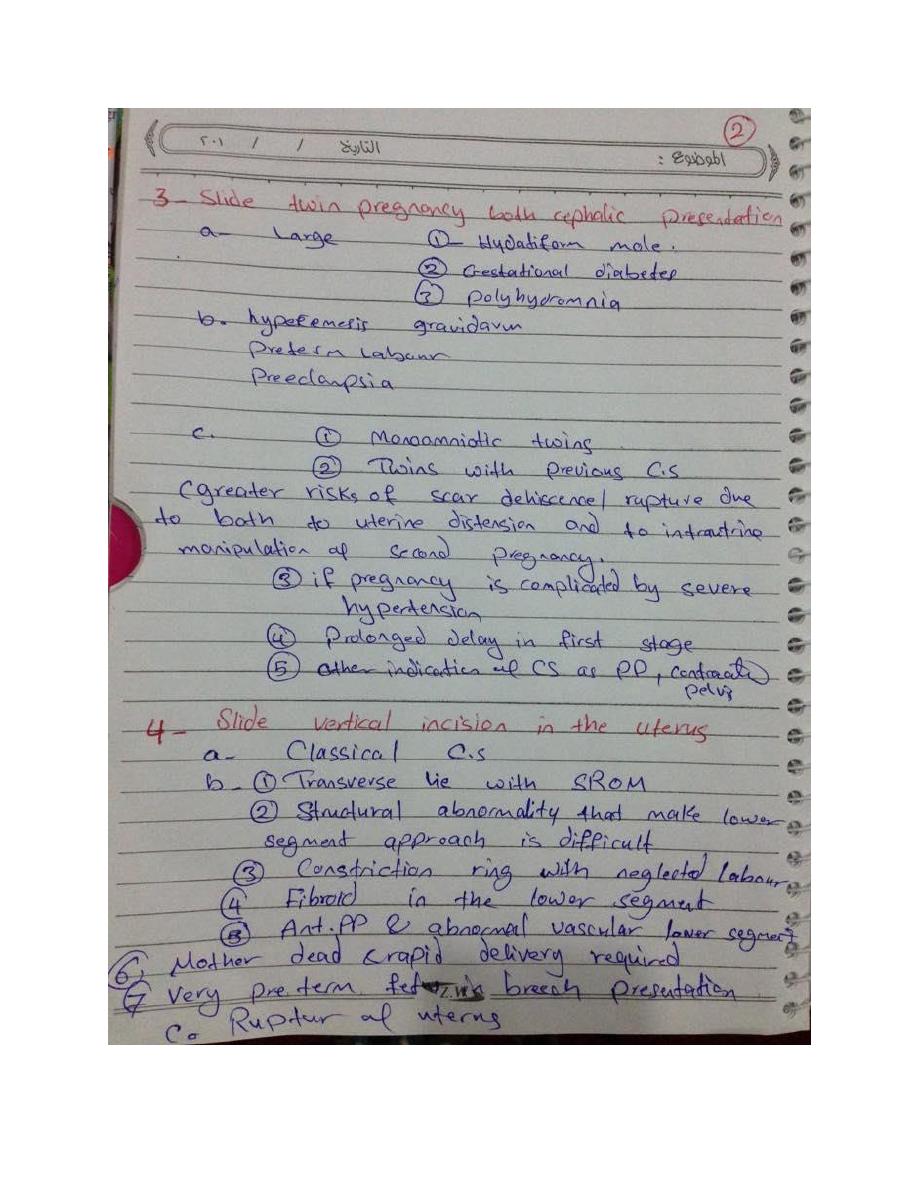 2
التاريخ / / ٢٠١
الموضوع :
3- Slide twin pregnancy both cephalic presentation
a- Large ①- Hydatiform mole.
② Gestational diabetes
③ polyhydromnia
b. hyperemesis gravidavum
Preterm Labour
Preeclampsia
c. ① Monoamniotic twins
② Twins with previous C.S
(greater risks of scar dehiscence/ rupture due
to both to uterine distension and to intrautrine
manipulation of second pregnancy.
③ if pregnancy is complicated by severe
hypertension
④ Prolonged delay in first stage
⑤ other indication of CS as PP, contracted
pelvis
4- Slide vertical incision in the uterus
a- Classical C.S
b- ① Transverse lie with SROM
② Structural abnormality that make lower
segment approach is difficult
③ Constriction ring with neglected labour
④ Fibroid in the lower segment
⑤ Ant. PP & abnormal vascular lower segment
⑥ Mother dead & rapid delivery required
⑦ very pre.term breech presentation
C. Ruptur of uterus